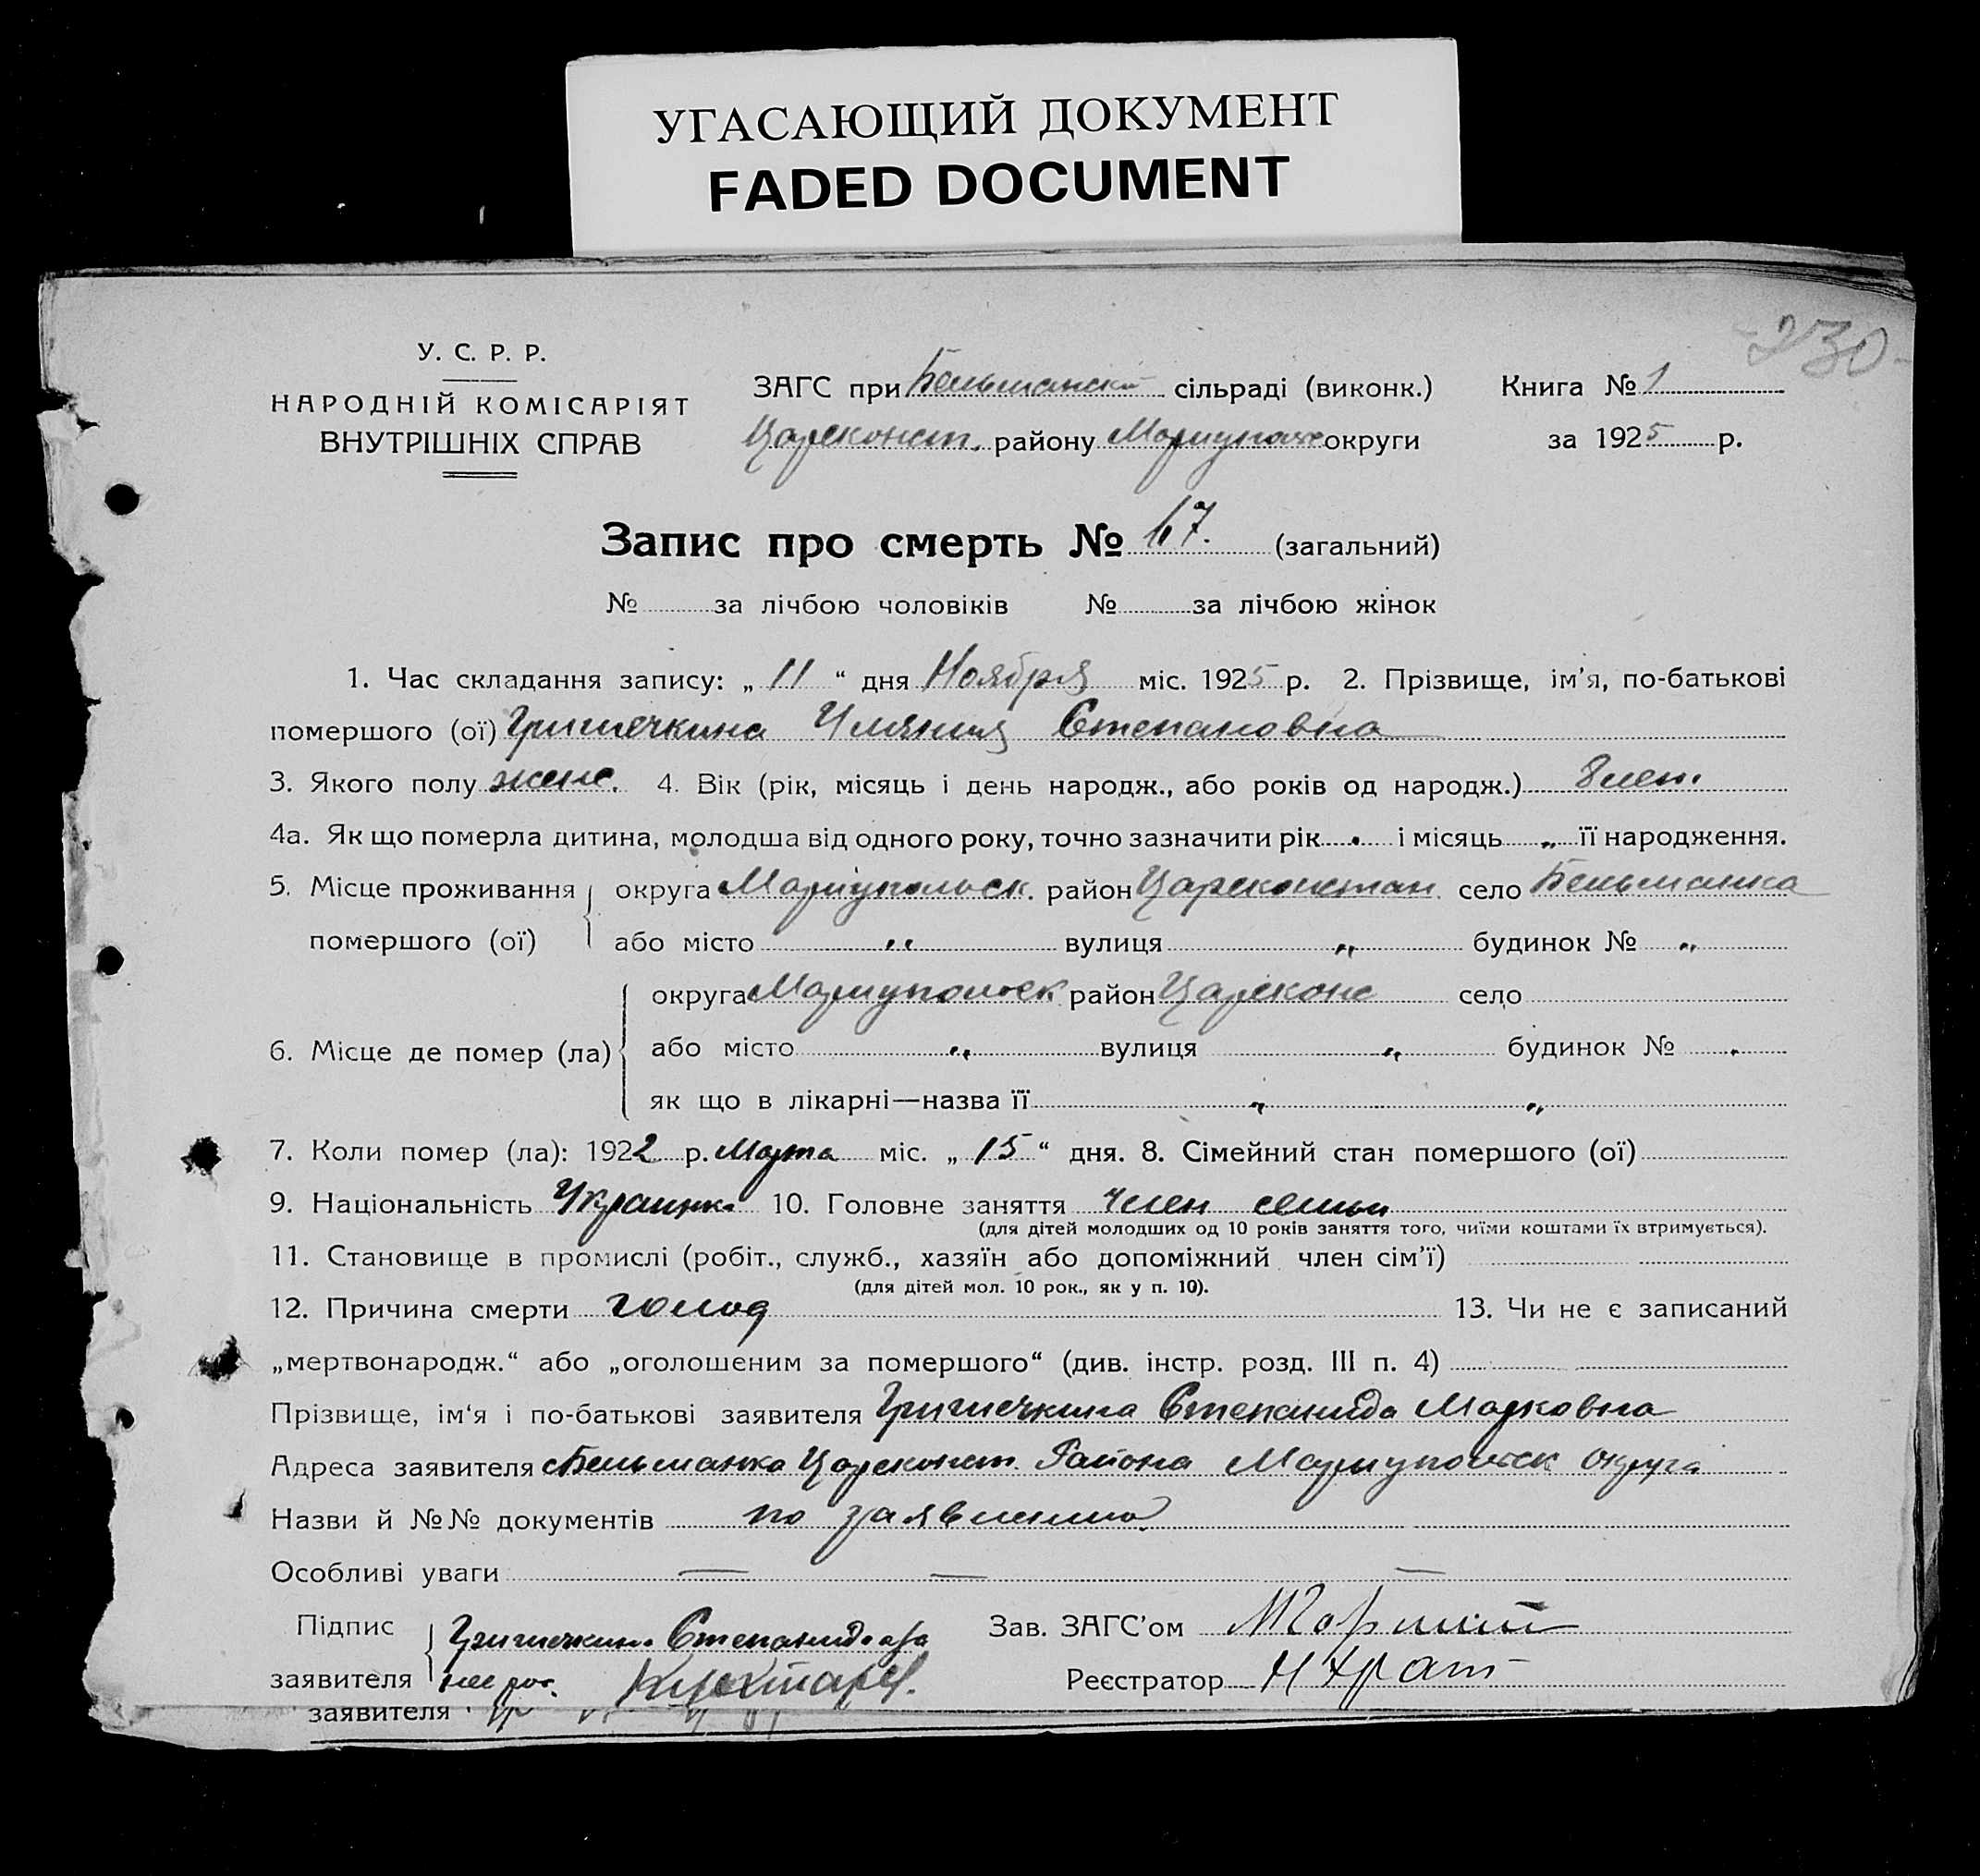 УГАСАЮЩИЙ ДОКУМЕНТ
FADED DOCUMENT
230
У. С. Р. Р.
НАРОДНІЙ КОМІСАРІЯТ
ВНУТРІШНІХ СПРАВ
ЗАГС при Бельманской сільраді (виконк.)
Книга № 1
Цареконст. району Мариупольс округи
за 1925 р.
Запис про смерть № 67. (загальний)
№ за лічбою чоловіків № за лічбою жінок
1. Час складання запису: „ 11 “ дня Ноября міс. 1925 р. 2. Прізвище, ім’я, по-батькові
помершого (ої) Степановна
3. Якого полу женс. 4. Вік (рік, місяць і день народж., або років од народж.) 8 лет.
4а. Як що померла дитина, молодша від одного року, точно зазначити рік і місяць „ її народження.
5. Місце проживання округа Маріупольск. район Цареконстан. село Бельманка
помершого (ої) або місто „ вулиця „ будинок № „
округа Мариупольск район Цареконс село
6. Місце де помер (ла) або місто „ вулиця „ будинок № „
як що в лікарні—назва її „ „
7. Коли помер (ла): 1922 р. Марта міс. „ 15 “ дня. 8. Сімейний стан помершого (ої)
9. Національність Украинк. 10. Головне заняття член семьи
(для дітей молодших од 10 років заняття того, чиїми коштами їх втримується).
11. Становище в промислі (робіт., служб., хазяїн або допоміжний член сім’ї)
(для дітей мол. 10 рок., як у п. 10).
12. Причина смерти голод 13. Чи не є записаний
„мертвонародж.“ або „оголошеним за помершого“ (див. інстр. розд. III п. 4)
Прізвище, ім‘я і по-батькові заявителя Степанида Марковна
Адреса заявителя с Бельманка Цареконст. Района Мариупольск округа
Назви й №№ документів по заявлению
Особливі уваги — — —
Підпис Степанида Зав. ЗАГС’ом
заявителя Реєстратор
заявителя